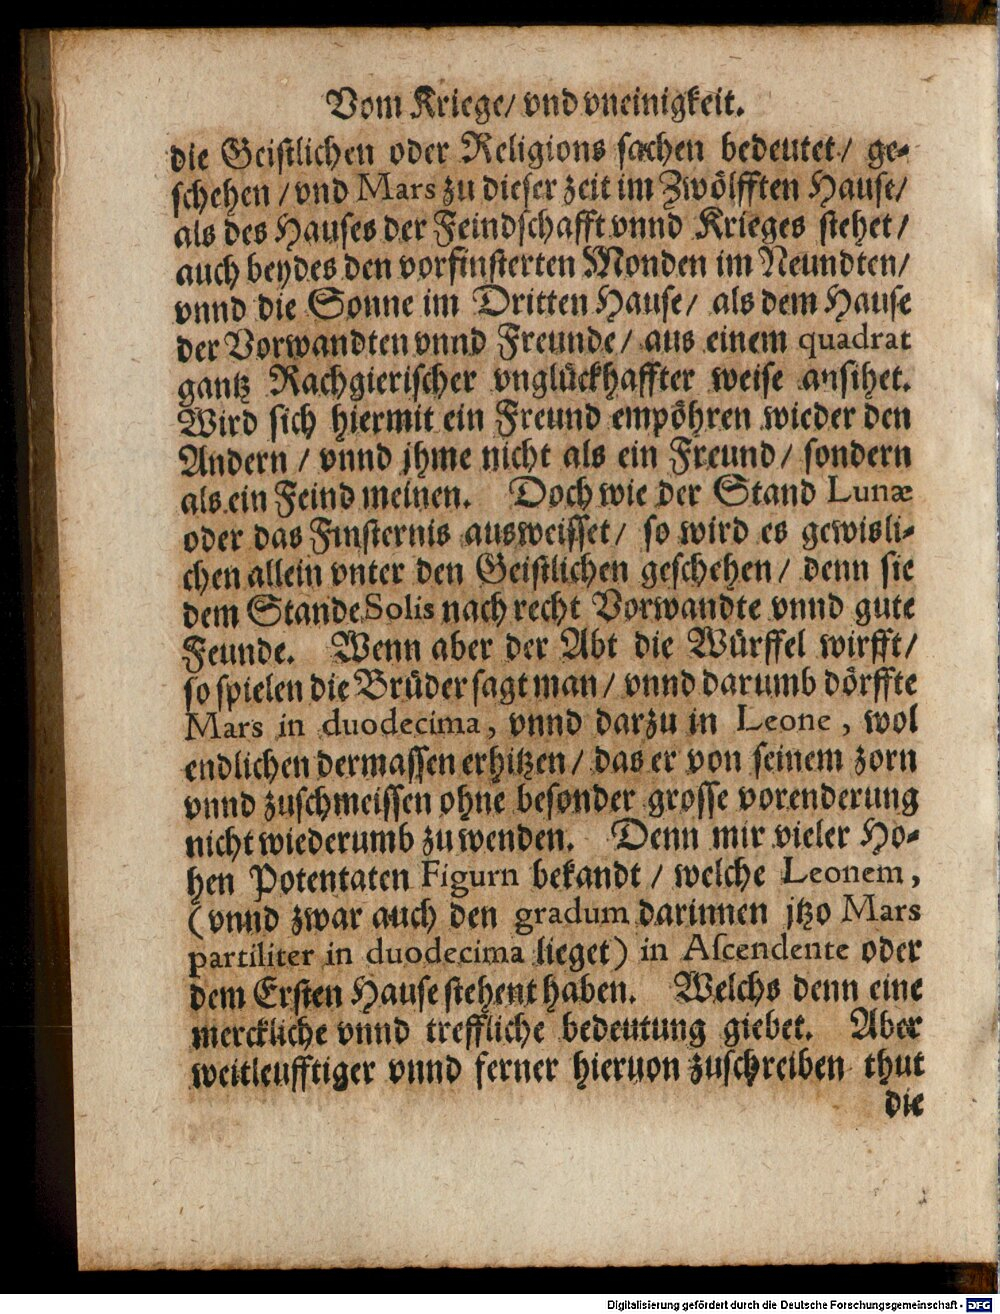 Vom Kriege/ vnd vneinigkeit.
die Geistlichen oder Religions sachen bedeutet/ ge-
schehen / vnd Mars zu dieser zeit im Zwölfften Hause/
als des Hauses der Feindschafft vnnd Krieges stehet/
auch beydes den vorfinsterten Monden im Neundten/
vnnd die Sonne im Dritten Hause/ als dem Hause
der Vorwandten vnnd Freunde/ aus einem quadrat
gantz Rachgierischer vnglückhaffter weise ansihet.
Wird sich hiermit ein Freund empöhren wieder den
Andern / vnnd jhme nicht als ein Freund/ sondern
als ein Feind meinen. Doch wie der Stand Lunæ
oder das Finsternis ausweisset/ so wird es gewisli-
chen allein vnter den Geistlichen geschehen/ denn sie
dem Stande Solis nach recht Vorwandte vnnd gute
Feunde. Wenn aber der Abt die Würffel wirfft/
so spielen die Brüder sagt man/ vnnd darumb dörffte
Mars in duodecima, vnnd darzu in Leone, wol
endlichen dermassen erhitzen/ das er von seinem zorn
vnnd zuschmeissen ohne besonder grosse vorenderung
nicht wiederumb zu wenden. Denn mir vieler Ho-
hen Potentaten Figurn bekandt / welche Leonem,
(vnnd zwar auch den gradum darinnen jtzo Mars
partiliter in duodecima lieget) in Aſcendente oder
dem Ersten Hause stehent haben. Welchs denn eine
merckliche vnnd treffliche bedeutung giebet. Aber
weitleufftiger vnnd ferner hieruon zuschreiben thut
die
Digitalisierung gefördert durch die Deutsche Forschungsgemeinschaft - DFG